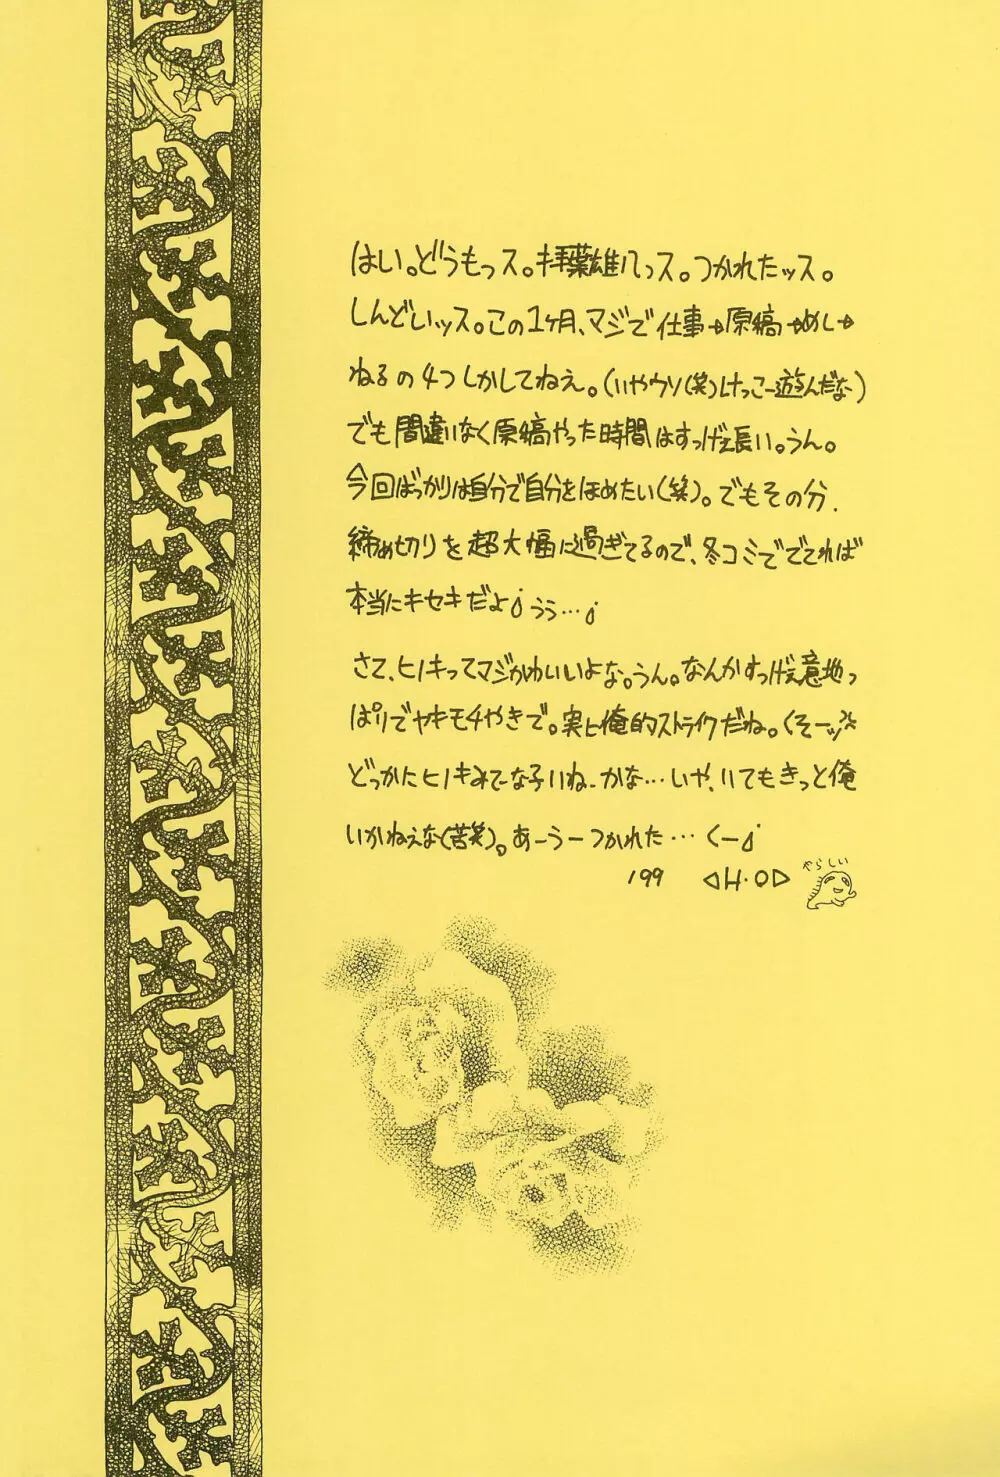 はい。どうもっス。拝葉雄八っス。つかれたッス。
しんどいッス。この1ヶ月、マジで仕事→原稿→めし→
ねるの4つしかしてねえ。(いやウソ(笑)けっこー遊んだな)
でも間違いなく原稿やった時間はすっげぇ長い。うん。
今回ばっかりは自分で自分をほめたい(笑)。でもその分、
締め切りを超大幅に過ぎてるので、冬コミででてれば
本当にキセキだよ うぅ…
さて、ヒノキってマジかわいいよな。うん。なんかすっげぇ意地っ
ぱりでヤキモチやきで。実に俺的ストライクだね。くそーッ
どっかにヒノキみてーな子いねーかな…いや、いてもきっと俺
いかねぇな(苦笑)。あーうーつかれた…くー
'99 ◁H・O▷ やらしい